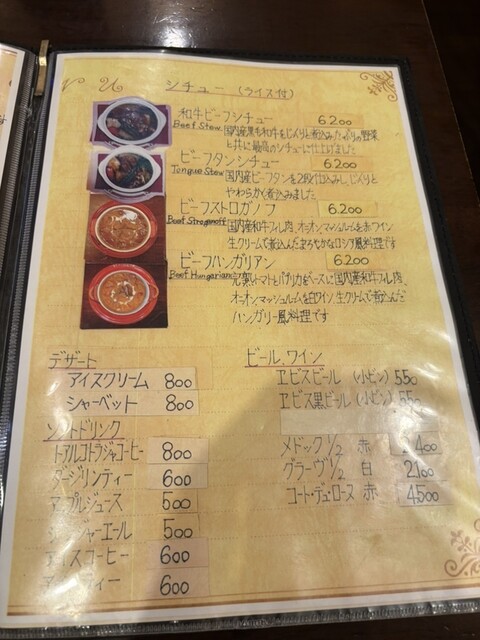 シチュー (ライス付)
和牛ビーフシチュー 6.200
Beef Stew 国内産黒毛和牛をじっくり煮込みたっぷりの野菜
と共に最高のシチューに仕上げました
ビーフタンシチュー 6.200
Tongue Stew 国内産ビーフタンを2段仕込みし、じっくりと
やわらかく煮込みました
ビーフストロガノフ 6.200
Beef Stroganoff 国内産和牛フィレ肉、オニオン、マッシュルームを赤ワイン
生クリームで煮込んだまろやかなロシア風料理です
ビーフハンガリアン 6.200
Beef Hungarian 完熟トマトとパプリカをベースに国内産和牛フィレ肉、
オニオン、マッシュルームを白ワイン、生クリームで煮込んだ
ハンガリー風料理です
デザート
アイスクリーム 800
シャーベット 800
ソフトドリンク
トアルコトラジャコーヒー 800
ダージリンティー 600
アップルジュース 500
ジンジャーエール 500
アイスコーヒー 600
ティー 600
ビール、ワイン
ヱビスビール (小ビン) 550
ヱビス黒ビール (小ビン) 550
メドック 1/2 赤 400
グラーヴ 1/2 白 2.100
コート・デュ・ローヌ 赤 4.500